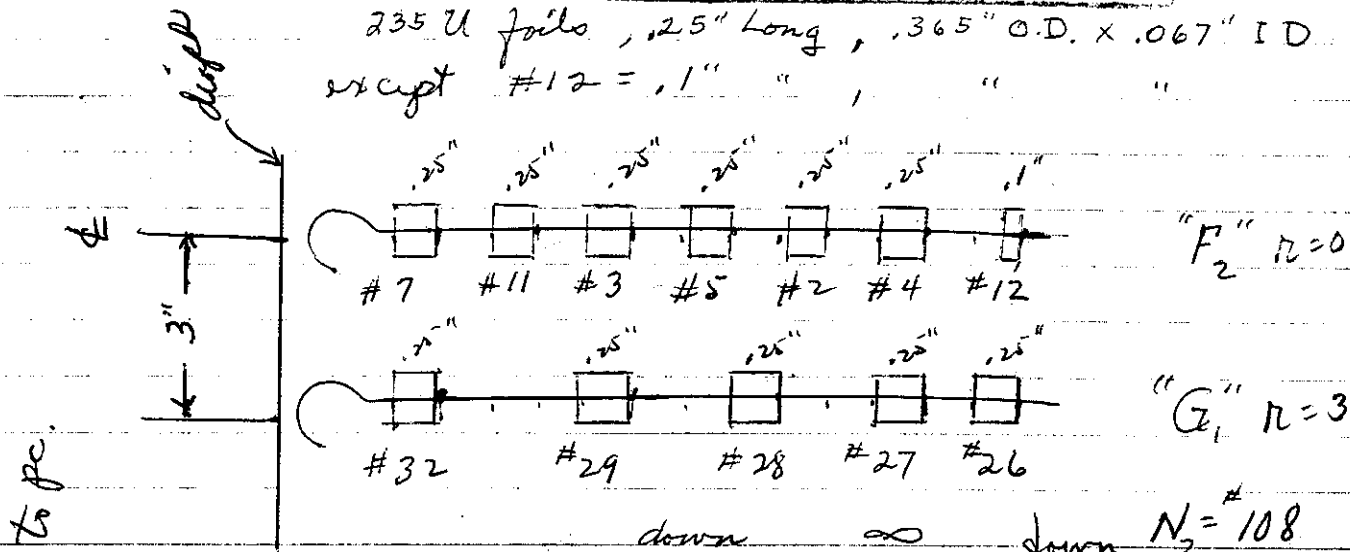 235 U foils, .25" Long, .365" O.D. x .067" I D
except #12 = .1" " , " "
.25" .25" .25" .25" .25" .25" .1"
℄
#7 #11 #3 #5 #2 #4 #12
"F₂" r=0
3"
.25" .25" .25" .25" .25"
#32 #29 #28 #27 #26
"G₁" r=3
down ∞ down N₂=#108